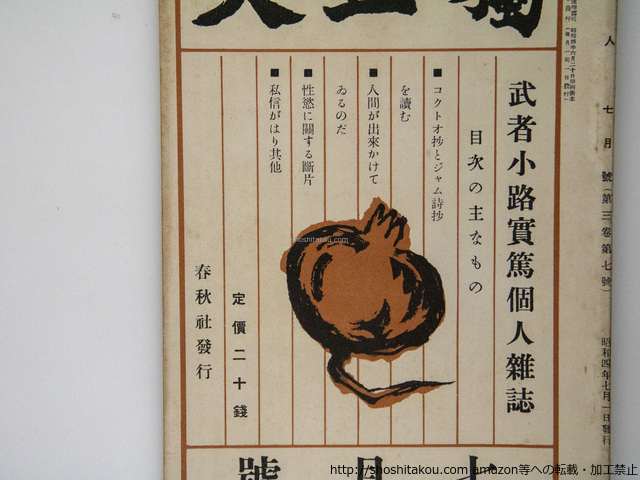 獨立人
武者小路實篤個人雜誌
目次の主なもの
■コクトオ抄とジャム詩抄
を讀む
■人間が出來かけて
ゐるのだ
■性慾に關する斷片
■私信がはり其他
定價二十錢
春秋社發行
七月號
人 七月號(第三卷第七號) 昭和四年七月一日發行
shoshitakou.com
http://shoshitakou.com amazon等への転載・加工禁止